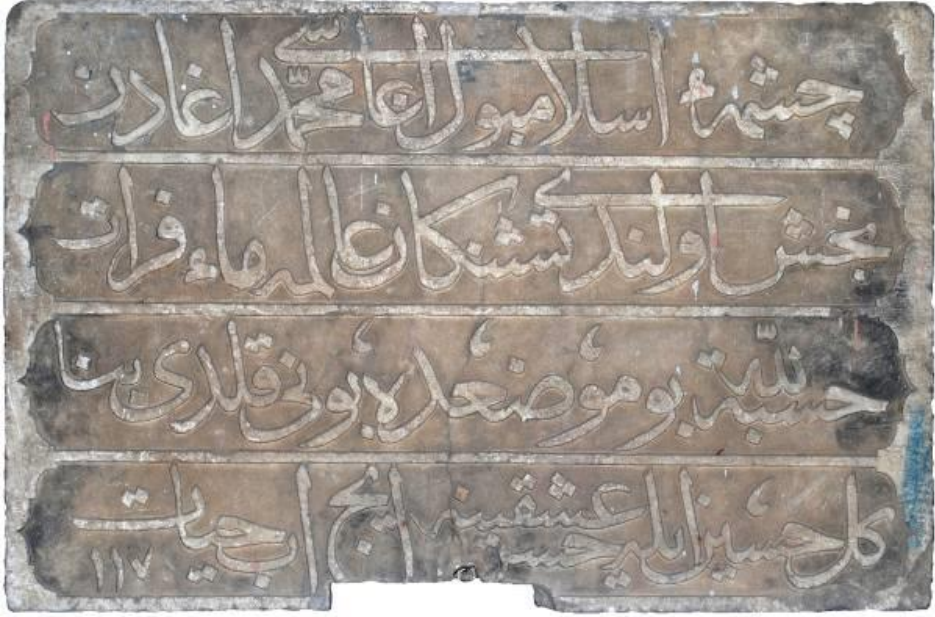 چشمهٔ اسلامبول اغاسی محمد اغادن
بخش اولندی تشنكان عالمه ماء فرات
حسبة لله بو موضعده بونی قلدی بنا
كل حسن ایله حسین عشقینه ایچ اب حیات
١١٧